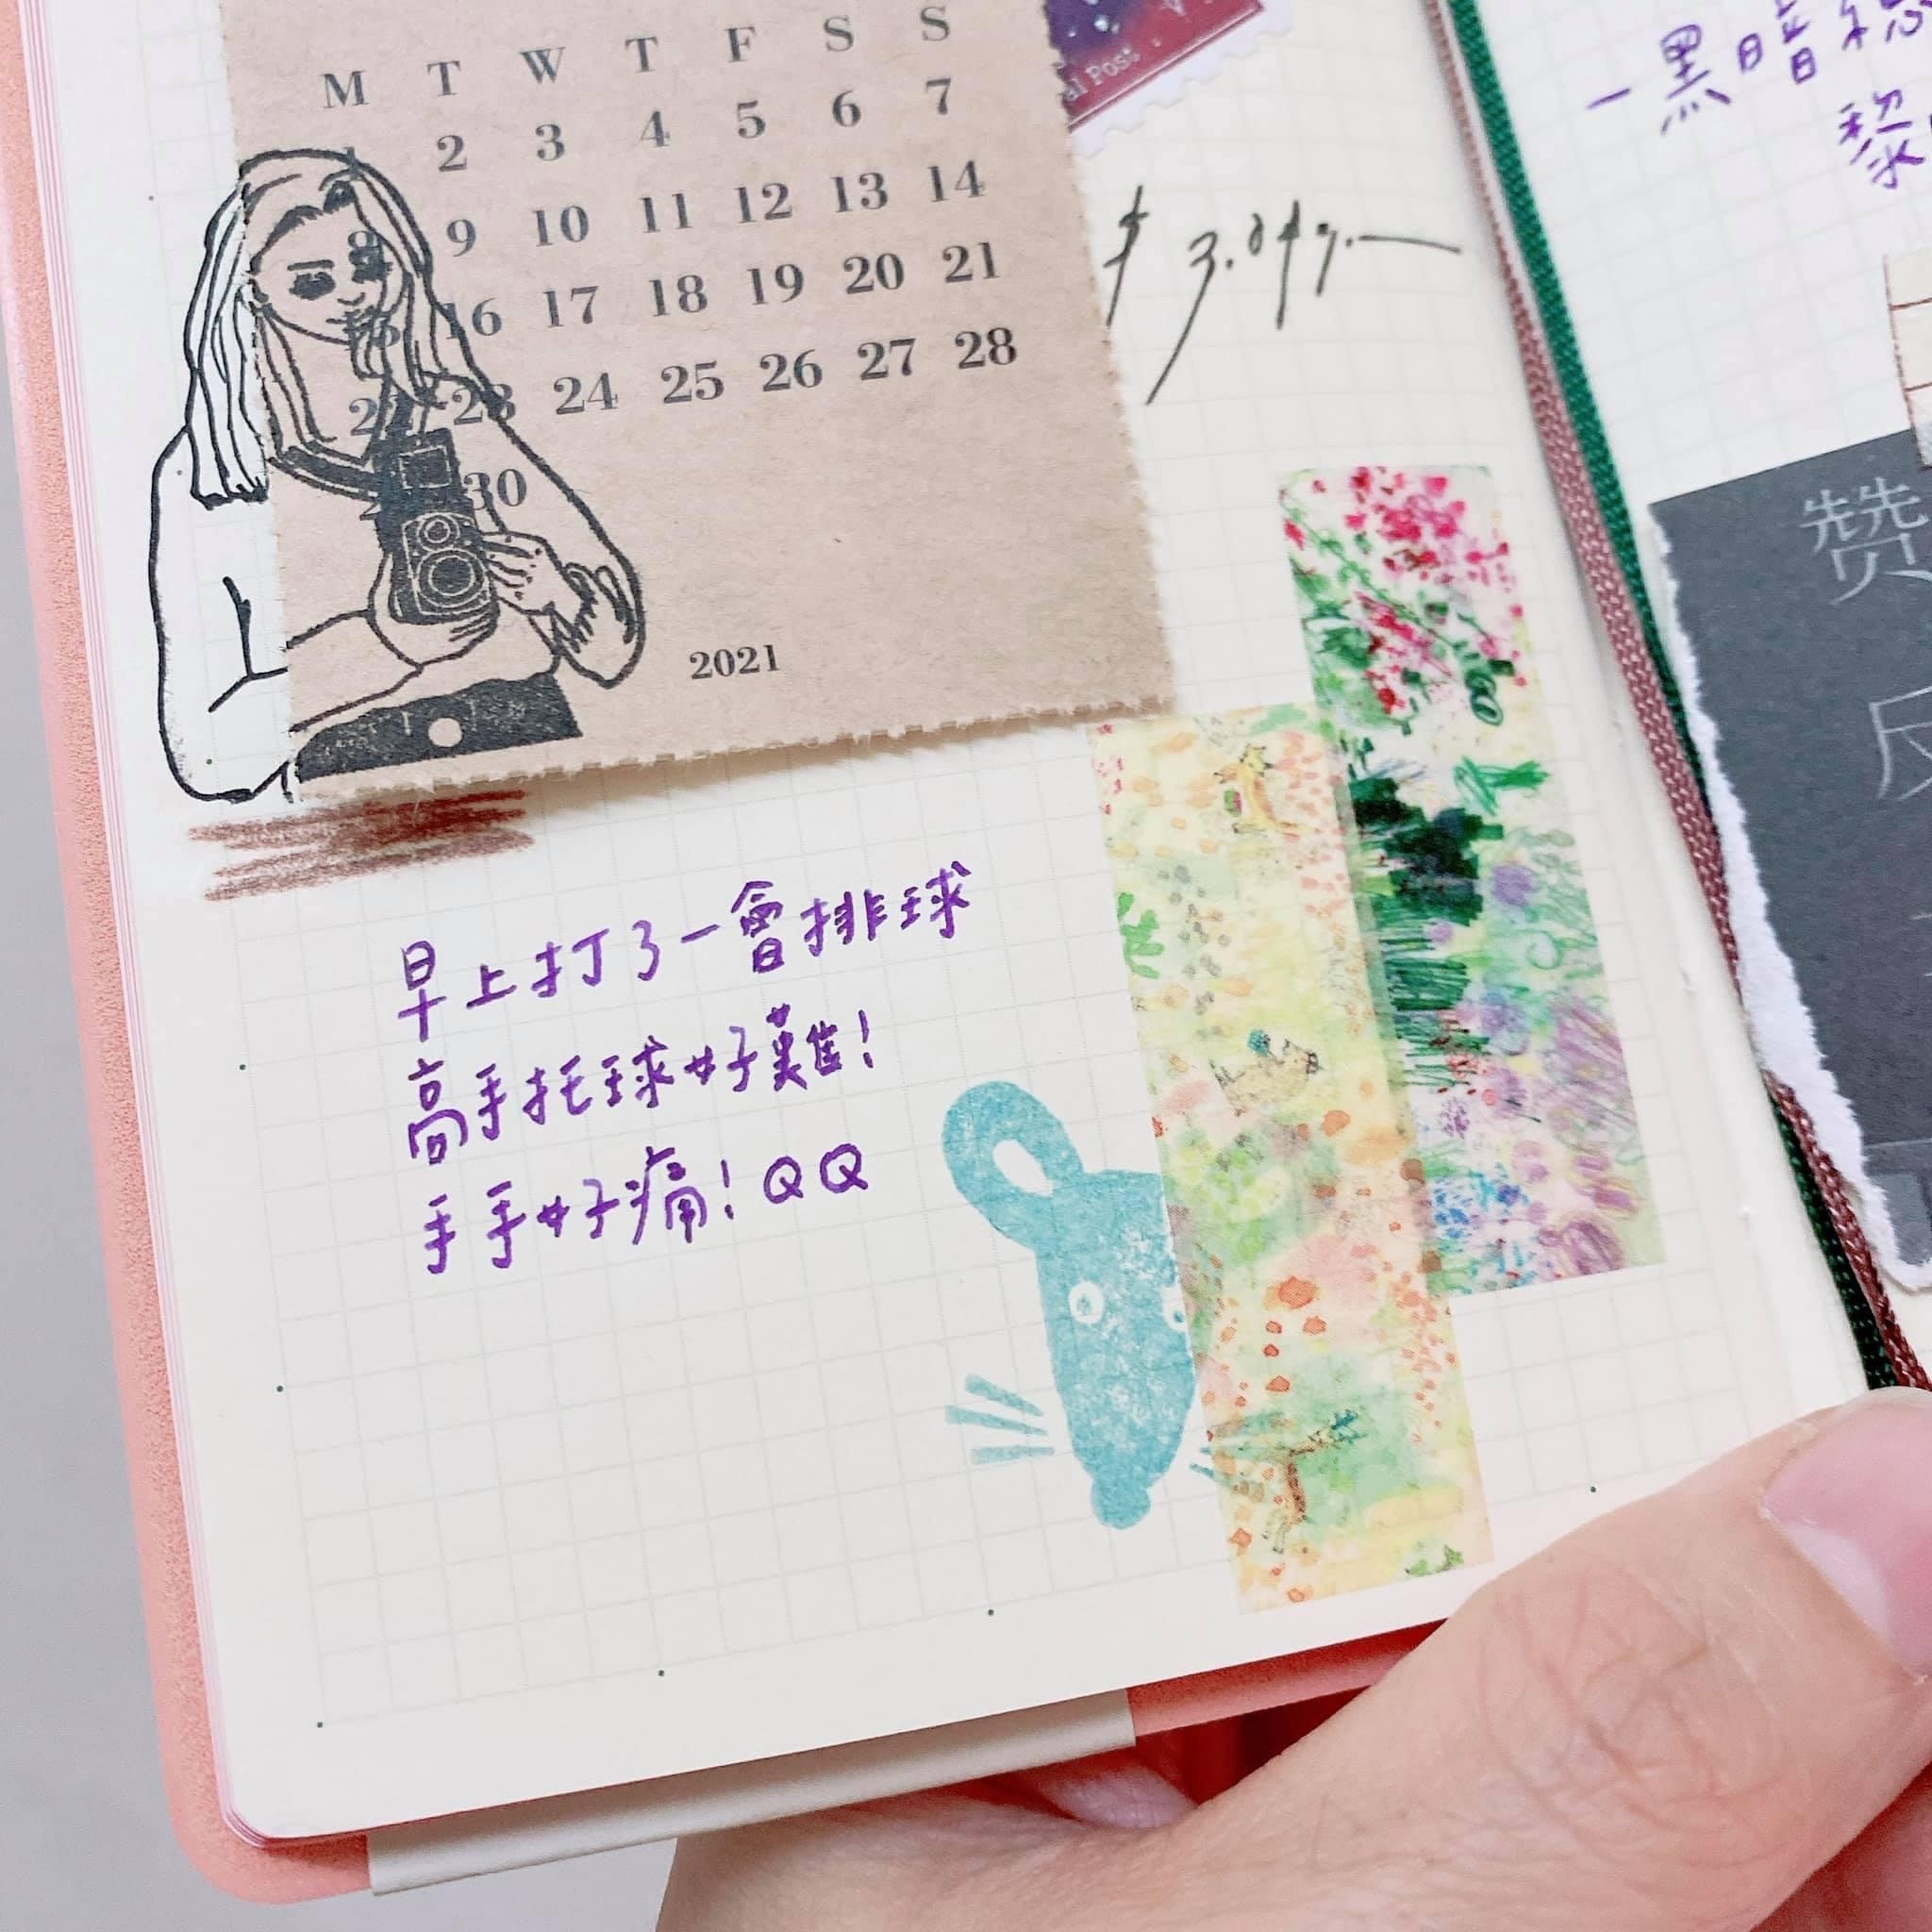 M T W T F S S
1 2 3 4 5 6 7
8 9 10 11 12 13 14
15 16 17 18 19 20 21
22 23 24 25 26 27 28
29 30
2021
al Post
早上打了一會排球
高手托球好難！
手手好痛！QQ
一黑暗總
黎
赞
反